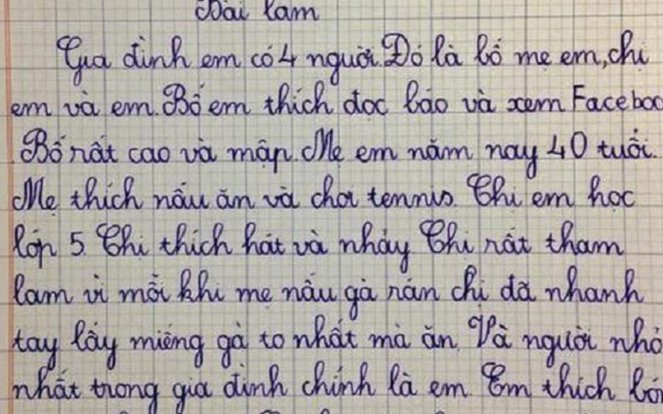 Bài làm
Gia đình em có 4 người. Đó là bố mẹ em, chị
em và em. Bố em thích đọc báo và xem Faceboo
Bố rất cao và mập. Mẹ em năm nay 40 tuổi.
Mẹ thích nấu ăn và chơi tennis. Chị em học
lớp 5. Chị thích hát và nhảy. Chị rất tham
lam vì mỗi khi mẹ nấu gà rán chị đã nhanh
tay lấy miếng gà to nhất mà ăn. Và người nhỏ
nhất trong gia đình chính là em. Em thích